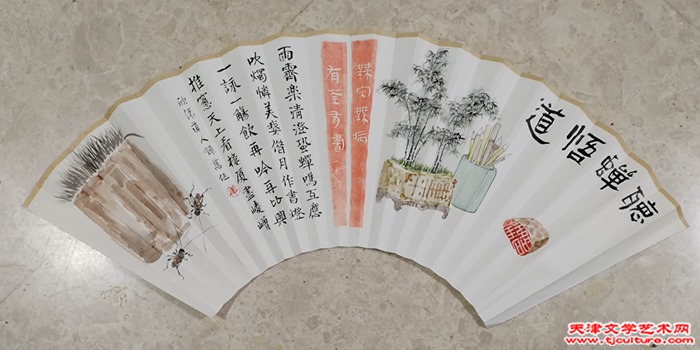 聽蟬悟道
無灾無病
有茶有書
雨霽樂清澄蛩蟬鳴互應
吹燭憐美借月作書燈
一詠一觴飲再吟再比興
推窗天上看樓廈盡崚嶒
天津文学艺术网
www.tjculture.com